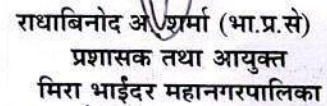 राधाबिनोद अ. शर्मा (भा.प्र.से)
प्रशासक तथा आयुक्त
मिरा भाईंदर महानगरपालिका